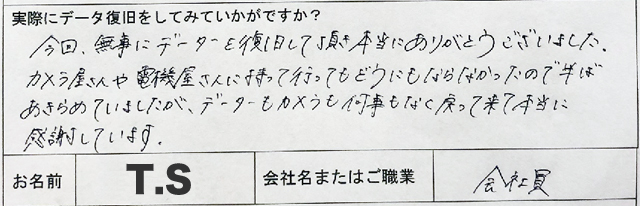 実際にデータ復旧をしてみていかがですか？
今回、無事にデーターを復旧して頂き本当にありがとうございました。
カメラ屋さんや電機屋さんに持って行ってもどうにもならなかったので半ば
あきらめていましたが、データーもカメラも何事もなく戻って来て本当に
感謝しています。
お名前 T.S 会社名またはご職業 会社員